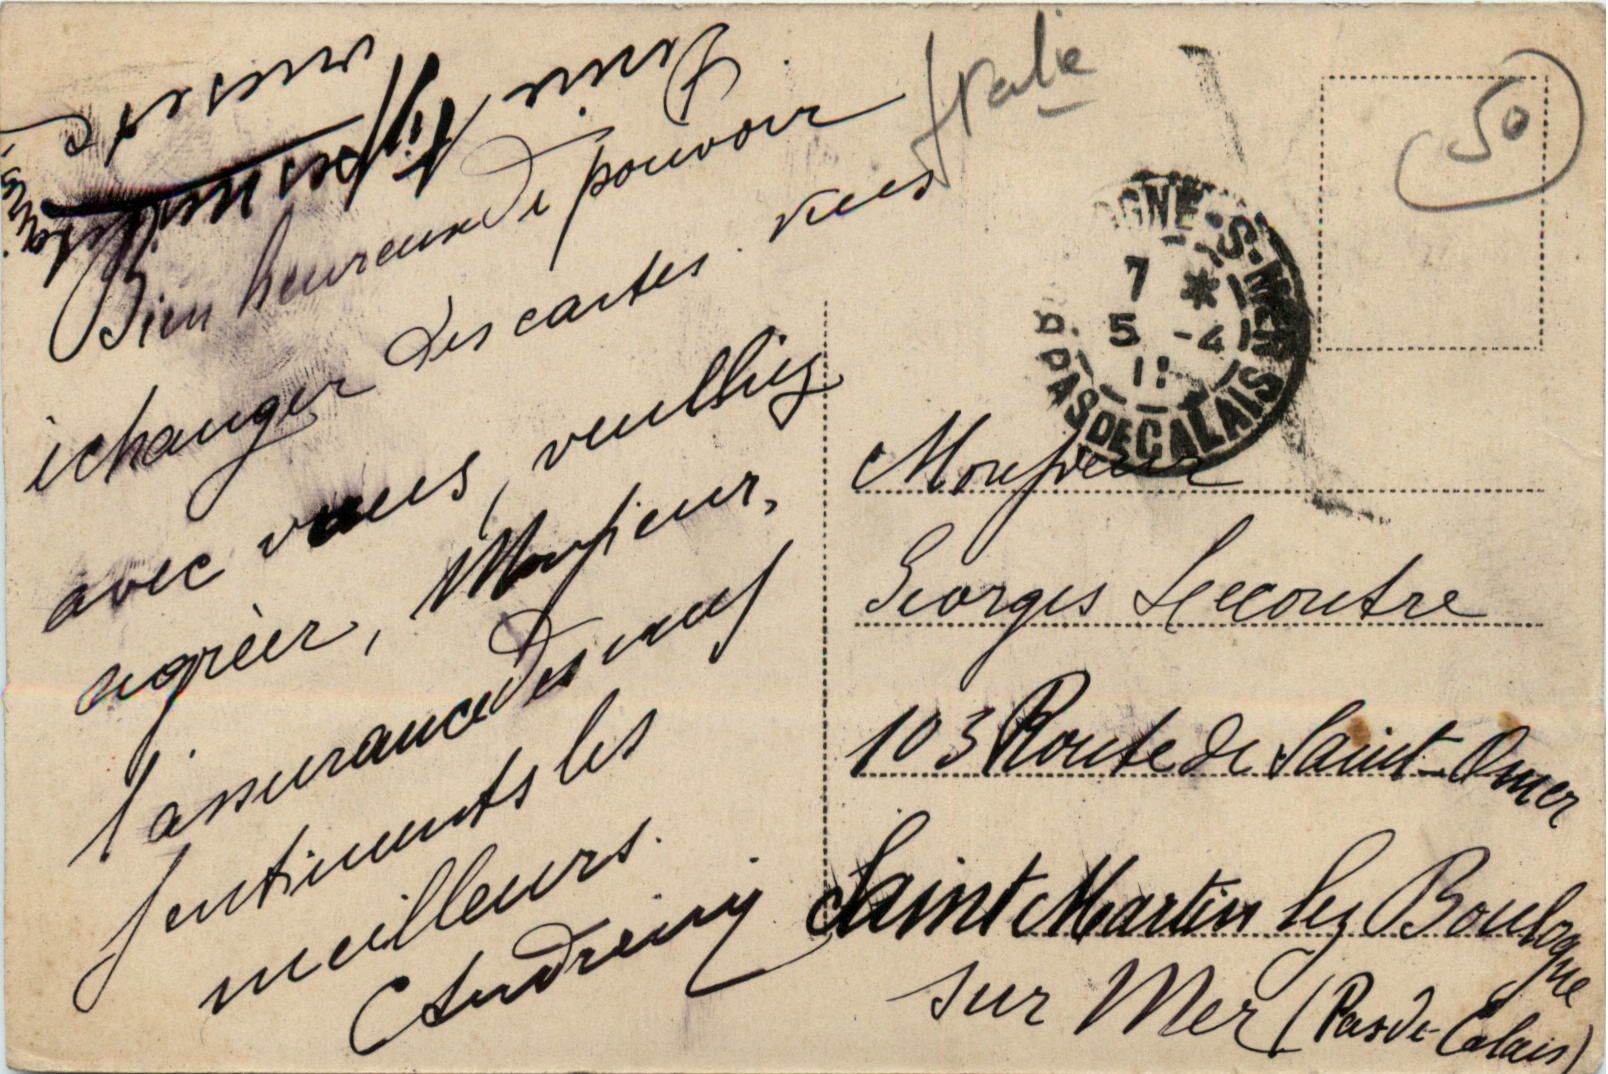 Bien heureux de pouvoir
échanger des cartes vues
avec vous, veuillez
agréer, Monsieur,
l'assurance de mes
sentiments les
meilleurs.
Italie
50
OGNE-S-MER
7 *
5 -4
11
PAS DE CALAIS
Monsieur
Georges Lecoutre
103 Route de Saint-Omer
Saint Martin lez Boulogne
sur Mer (Pas de Calais)